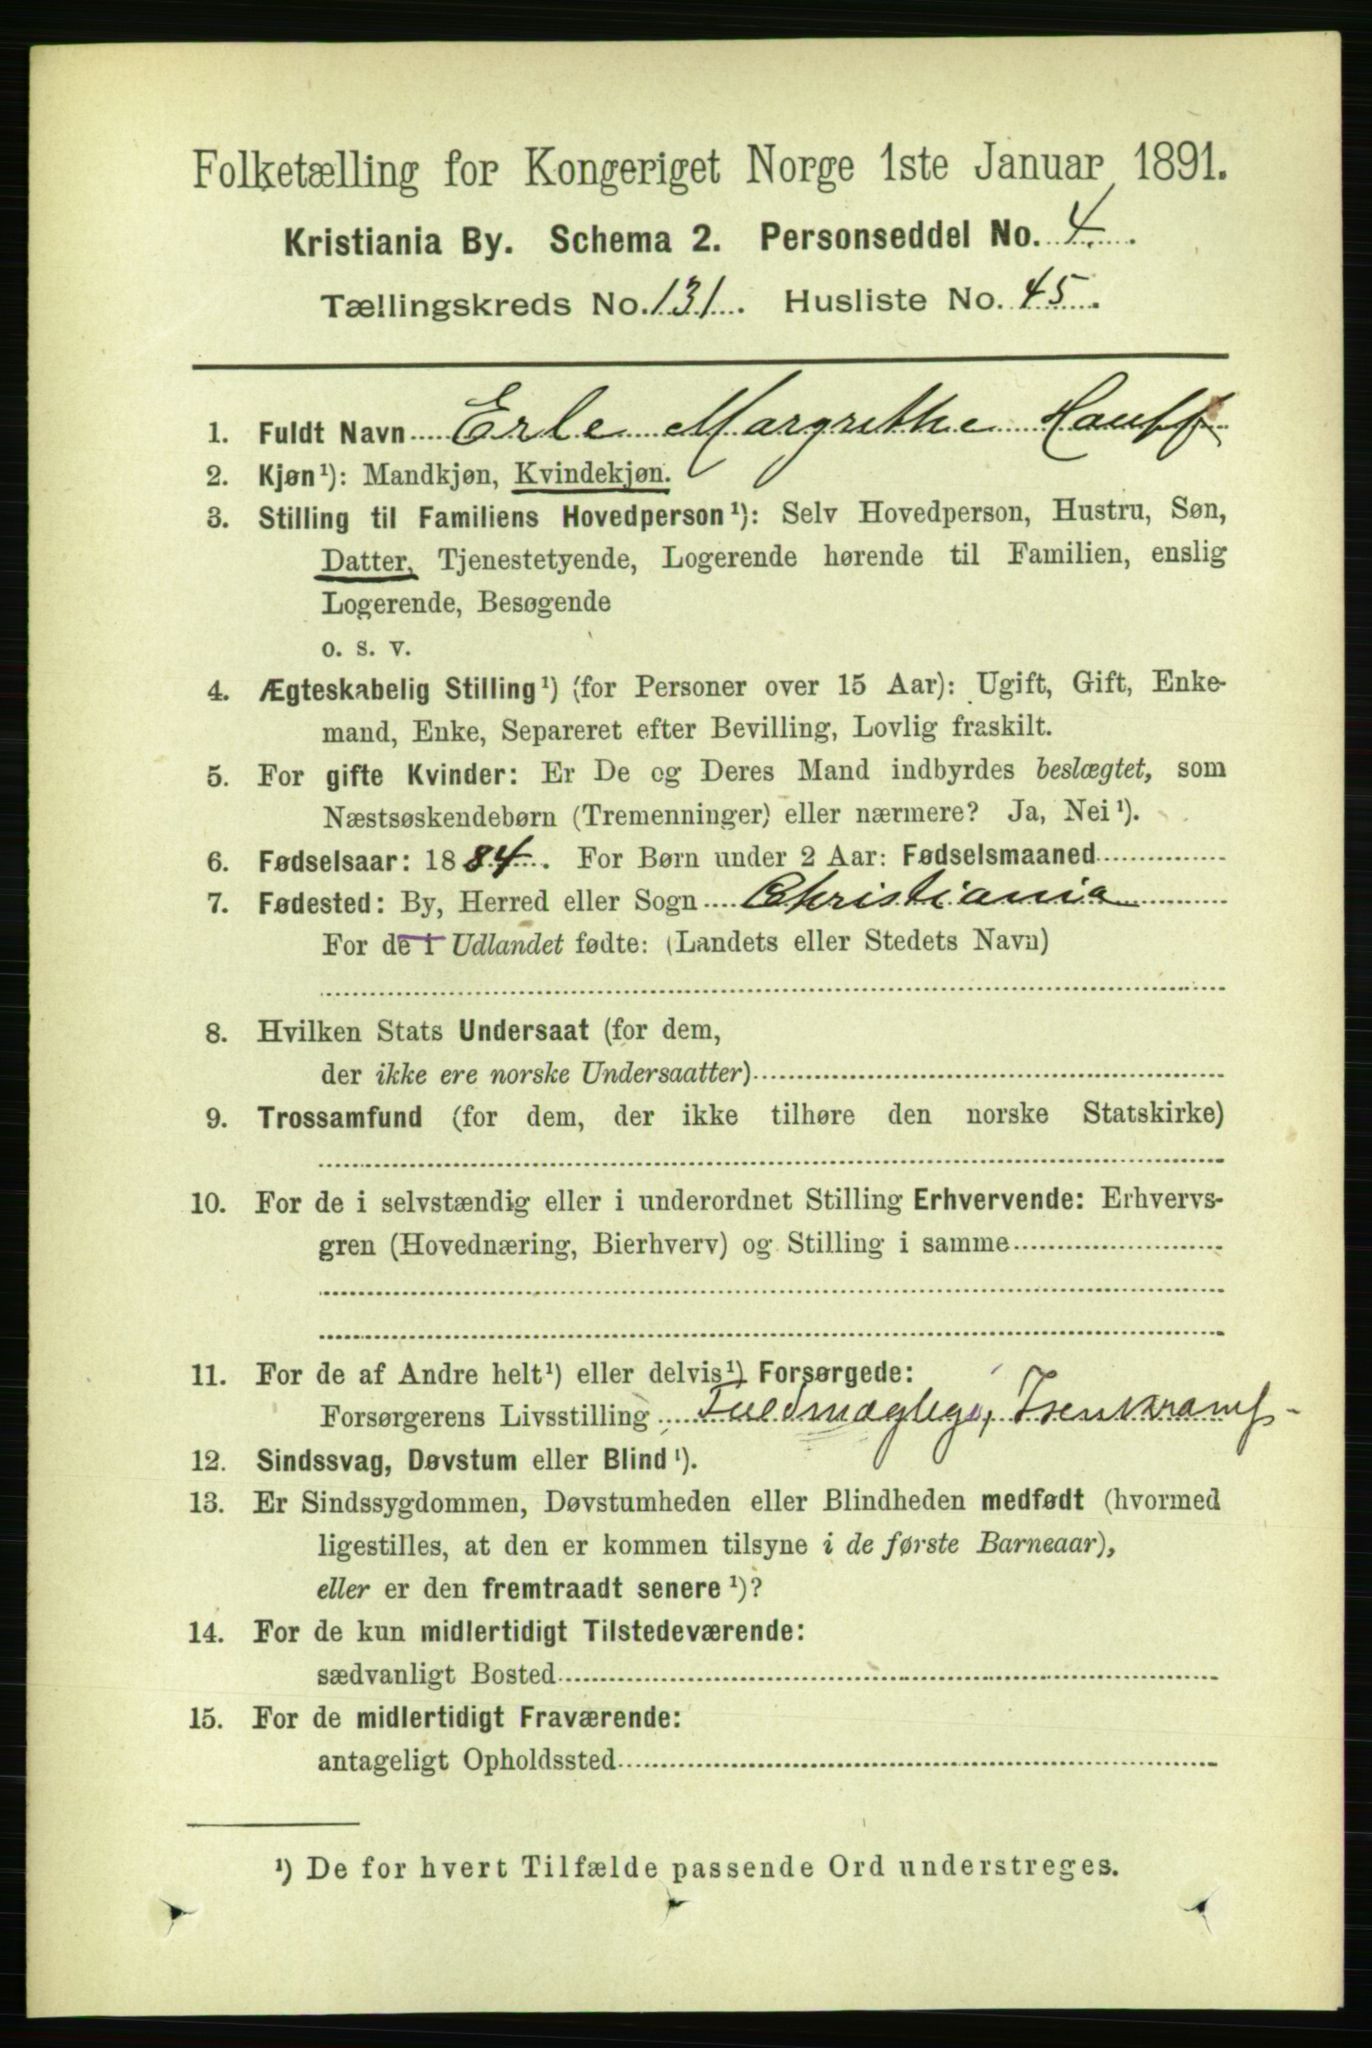 Folketælling for Kongeriget Norge 1ste Januar 1891.
Kristiania By. Schema 2. Personseddel No. 4.
Tællingskreds No. 131. Husliste No. 45.
1. Fuldt Navn Erle Margrethe Hauff
2. Kjøn¹): Mandkjøn, Kvindekjøn.
3. Stilling til Familiens Hovedperson¹): Selv Hovedperson, Hustru, Søn,
Datter, Tjenestetyende, Logerende hørende til Familien, enslig
Logerende, Besøgende
o. s. v.
4. Ægteskabelig Stilling¹) (for Personer over 15 Aar): Ugift, Gift, Enke-
mand, Enke, Separeret efter Bevilling, Lovlig fraskilt.
5. For gifte Kvinder: Er De og Deres Mand indbyrdes beslægtet, som
Næstsøskendebørn (Tremenninger) eller nærmere? Ja, Nei¹).
6. Fødselsaar: 1884. For Børn under 2 Aar: Fødselsmaaned
7. Fødested: By, Herred eller Sogn Christiania
For de i Udlandet fødte: (Landets eller Stedets Navn)
8. Hvilken Stats Undersaat (for dem,
der ikke ere norske Undersaatter)
9. Trossamfund (for dem, der ikke tilhøre den norske Statskirke)
10. For de i selvstændig eller i underordnet Stilling Erhvervende: Erhvervs-
gren (Hovednæring, Bierhverv) og Stilling i samme
11. For de af Andre helt¹) eller delvis¹) Forsørgede:
Forsørgerens Livsstilling Fuldmægtig,
12. Sindssvag, Døvstum eller Blind¹).
13. Er Sindssygdommen, Døvstumheden eller Blindheden medfødt (hvormed
ligestilles, at den er kommen tilsyne i de første Barneaar),
eller er den fremtraadt senere¹)?
14. For de kun midlertidigt Tilstedeværende:
sædvanligt Bosted
15. For de midlertidigt Fraværende:
antageligt Opholdssted
¹) De for hvert Tilfælde passende Ord understreges.